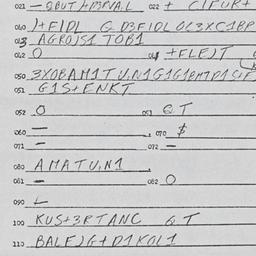 021 — QBUT+D3RVA.L 022 + CIFUR+
040 )+FIDL G D3FIDL OC3XC1BP
043 AGRO)S1 TOB1
042 O 04 +FLE)T
050 3XOBAM1TU,N1G1G1BMTD1CIF
051 G1S+ENKT
052 O 053 Q T
060 — . 070 $
071 — 072 —
080 AMATU,N1 .
081 — 082 O
090 —
100 KUS+3RTANC Q T
110 BALE)G+D1KOL1